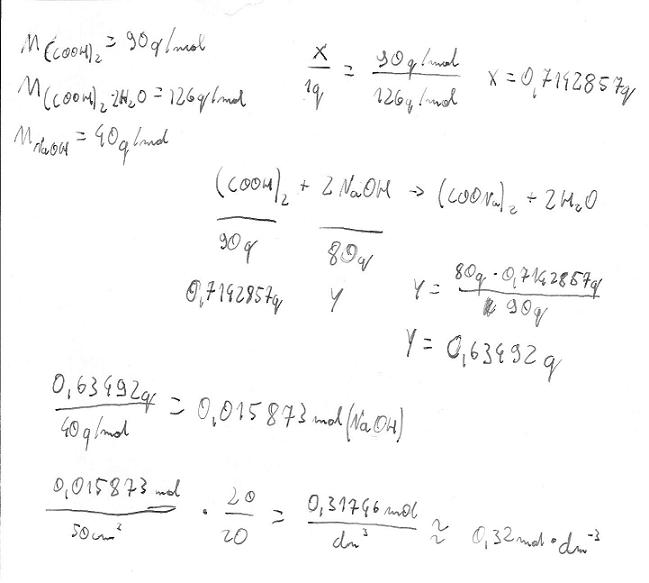 M(COOH)₂ = 90g/mol
M(COOH)₂·2H₂O = 126g/mol
MNaOH = 40g/mol
x/1g = 90g/mol/126g/mol x = 0,7142857g
(COOH)₂ + 2NaOH → (COONa)₂ + 2H₂O
90g 80g
0,7142857g y
y = 80g · 0,7142857g/90g
y = 0,63492g
0,63492g/40g/mol = 0,015873mol(NaOH)
0,015873mol/50cm³ · 20/20 = 0,31746mol/dm³ ≈ 0,32mol·dm⁻³